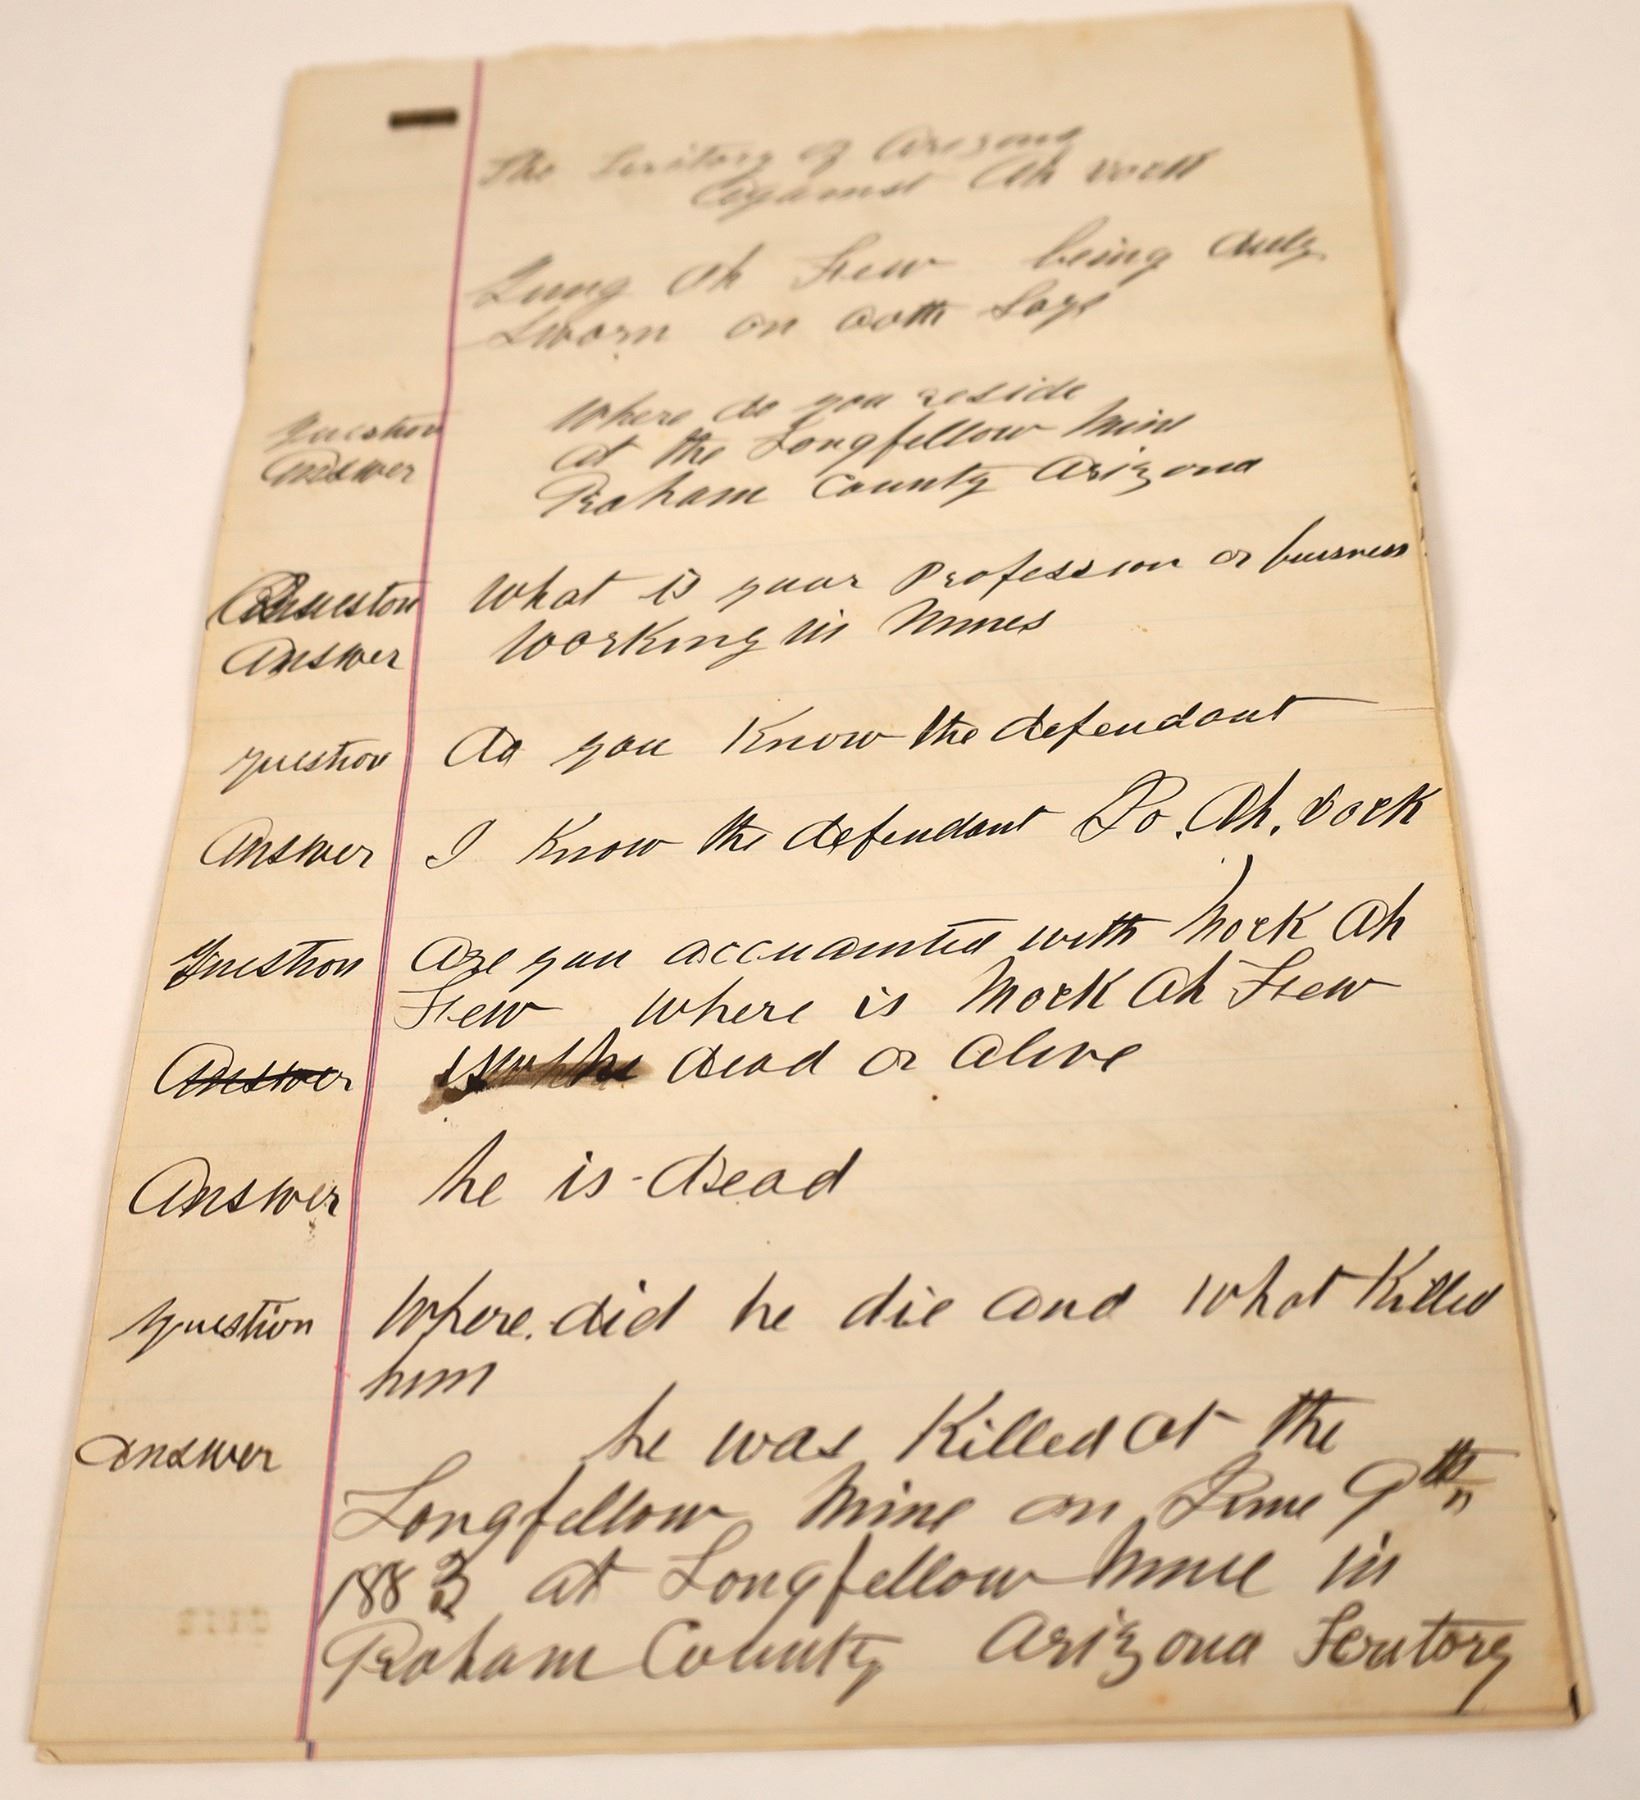 The Territory of Arizona
Against Ah Vock
Gung Ah Few being duly
Sworn on aoth Says
Question Where do you reside
Answer at the Longfellow Mine
Graham County Arizona
Queston What is your Profession or buisness
Answer Working in Mines
question do you Know the defendant
Answer I Know the defendant Po. Ah. Vock
Question are you accuainted with Mock Ah
Few Where is Mock Ah Few
Answer dead or alive
Answer he is dead
question Where did he die and what Killed
him
answer he was Killed at the
Longfellow Mine on June 9th
1883 at Longfellow Mine in
Graham County Arizona Teritory